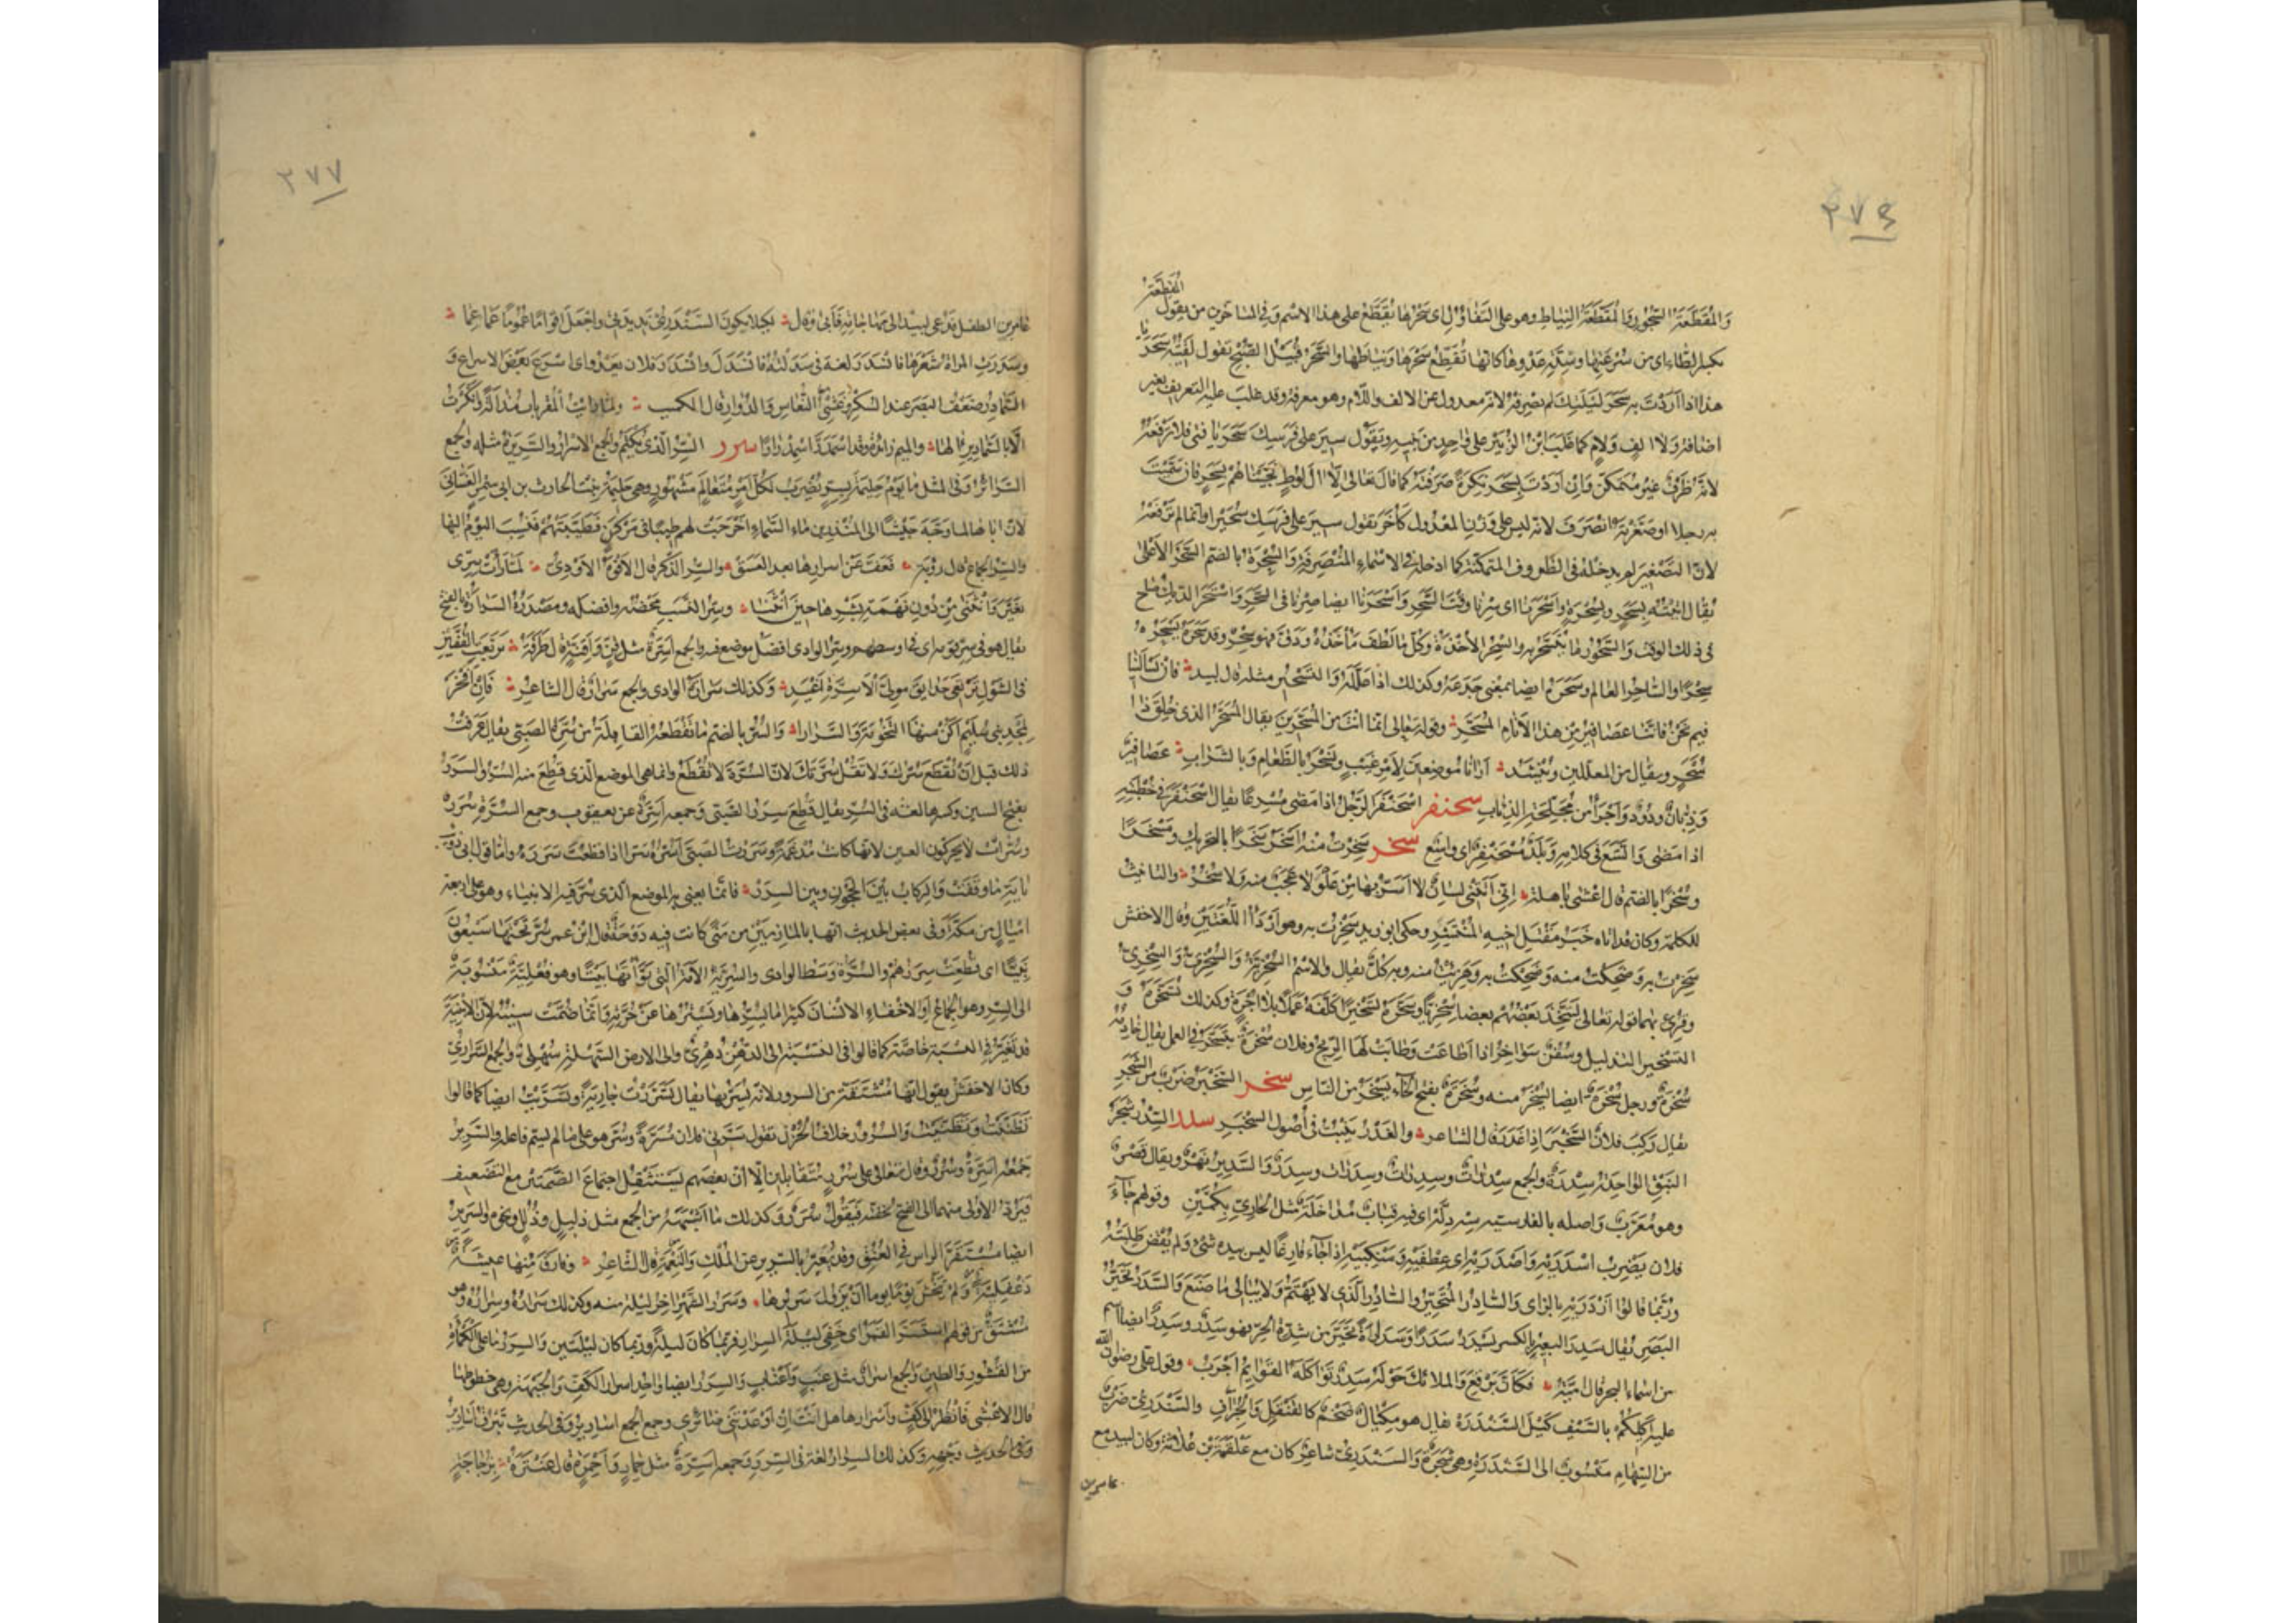 ٢٧٦
المقطعة
والمقطعة السحور والمقطعة النياط وهو على التفاؤل اى سحرها يقطع على هذا الاسم وفى المتأخرين من يقول
بكسر الطاء اى من سرعتها وشدة عدوها كانها تقطع سحرها ونياطها والسحر قبيل الصبح تقول لقيته سحر يا
هذا اذا اردت به سحر ليلتك لم تصرفه لانه معدول عن الالف واللام وهو معرفة وقد غلب عليه التعريف بغير
اضافة ولا الف ولام كما غلب ابن الزبير على واحد من بنيه وتقول سير على فرسك سحر يا فتى فلا ترفعه
لانه ظرف غير متمكن وان اردت بسحر نكرة صرفته كما قال تعالى الا ال لوط نجيناهم بسحر فان سميت
به رجلا او صغرته انصرف لانه ليس على وزن المعدول كاخر تقول سير على فرسك سحيرا وانما لم ترفعه
لان التصغير لم يدخله فى الظروف المتمكنة كما ادخله فى الاسماء المنصرفة والسحرة بالضم السحر الاعلى
يقال اتيته بسحر وبسحرة واسحرنا اى سرنا وقت السحر واسحرنا ايضا صرنا فى السحر واستحر الديك صاح
فى ذلك الوقت والسحور ما يتسحر به والسحر الاخذة وكل ما لطف مأخذه ودق فهو سحر وقد سحره يسحره
سحرا والساحر العالم وسحره ايضا بمعنى خدعه وكذلك اذا علله والتسحير مثله قال لبيد فان تسألينا
فيم نحن فاننا عصافير من هذا الانام المسحر وقوله تعالى انما انت من المسحرين يقال المسحر الذى خلق ذا
سحر ويقال من المعللين وينشد ارانا موضعين لامر غيب ونسحر بالطعام وبالشراب عصافير
وذبان ودود واجرأ من مجلحة الذياب سحنفر اسحنفر الرجل اذا مضى مسرعا يقال اسحنفر فى خطبته
اذا مضى واتسع فى كلامه وبلد مسحنفر اى واسع سخر سخرت منه اسخر سخرا بالتحريك ومسخرا
وسخرا بالضم قال اعشى باهلة انى اتتنى لسان لا اسر بها من علو لا عجب منه ولا سخر والتانيث
للكلمة وكان قد اتاه خبر مقتل اخيه المنتشر وحكى ابو زيد سخرت به وهو اردأ اللغتين وقال الاخفش
سخرت به وضحكت منه وضحكت به وهزئت منه وبه كل يقال والاسم السخرية والسخرى والسخرى
وقرئ بهما قوله تعالى ليتخذ بعضهم بعضا سخريا وسخره تسخيرا كلفه عملا بلا اجرة وكذلك تسخره و
التسخير التذليل وسفن سواخر اذا اطاعت وطابت لها الريح وفلان سخرة يتسخر فى العمل يقال خادمة
سخرة ورجل سخرة ايضا يسخر منه وسخرة بفتح الخاء يسخر من الناس سخبر السخبر ضرب من الشجر
يقال ركب فلان السخبر اذا غدر قال الشاعر والغدر ينبت فى اصول السخبر سدر السدر شجر
النبق الواحدة سدرة والجمع سدرات وسدرات وسدرات وسدر والسدير نهر ويقال قصر
وهو معرب واصله بالفارسية سه دله اى فيه قباب مداخلة مثل الحارى بكمين وقولهم جاء
فلان يضرب اسدريه واصدريه اى عطفيه ومنكبيه اذا جاء فارغا ليس بيده شئ ولم يقض طلبته
وربما قالوا ازدريه بالزاى والسادر المتحير والسادر الذى لا يهتم ولا يبالى ما صنع والسدر تحير
البصر يقال سدر البعير بالكسر يسدر سدرا وسدارة تحير من شدة الحر فهو سدر وسدر ايضا اسم
من اسماء البحر قال امية فكأن برقع والملائك حوله سدر تواكله القوائم اجرب وقول على رضوان الله
عليه اكيلكم بالسيف كيل السندرة يقال هو مكيال ضخم كالقنقل والجراف والسندرى ضرب
من السهام منسوب الى السندرة وهى شجرة والسندرى شاعر كان مع علقمة بن علاثة وكان لبيد مع
عامر بن
٢٧٧
عامر بن الطفيل فدعى لبيد الى مهاجاته فأبى وقال لكيلا يكون السندرى نديدتى واجعل اقواما عموما عماعما
وسدرت المراة شعرها فانسدر لغة فى سدلته فانسدل وانسدر فلان يعدو اى اسرع بعض الاسراع و
السمادير ضعف البصر عند السكر وغشى النعاس والدوار قال الكميت ولما رايت المقربات مذالة وانكرت
الا بالسمادير آلها والميم زائدة وقد اسمدر اسمدرارا سرر السر الذى يكتم والجمع الاسرار والسريرة مثله والجمع
السرائر وفى المثل ما يوم حليمة بسر يضرب لكل امر متعالم مشهور وهى حليمة بنت الحارث بن ابى شمر الغسانى
لان اباها لما وجه جيشا الى المنذر بن ماء السماء اخرجت لهم طيبا فى مركن فطيبتهم فنسب اليوم اليها
والسر الجماع قال رؤبة فعف عن اسرارها بعد العسق والسر الذكر قال الافوه الاودى لما رأت سرى
تغير وانثنى من دون نهمة بشرها حين انثنا وسر النسب محضه وافضله ومصدره السرارة بالفتح
يقال هو فى سر قومه اى فى اوسطهم وسر الوادى افضل موضع فيه والجمع اسرة مثل قن واقنة قال طرفة تربعت القفين
فى الشول ترتعى حدايق مولى الاسرة اغيد وكذلك سرارة الوادى والجمع سرار قال الشاعر فان افخر
بمجد بنى سليم اكن منها التخومة والسرارا والسر بالضم ما تقطعه القابلة من سرة الصبى يقال عرفت
ذلك قبل ان تقطع سرك ولا تقل سرتك لان السرة لا تقطع وانما هى الموضع الذى قطع منه السر والسرر
بفتح السين وكسرها لغة فى السر يقال قطع سرر الصبى وجمعه اسرة عن يعقوب وجمع السرة سرر
وسرات لا يحركون العين لانها كانت مدغمة وسررت الصبى اسره سرا اذا قطعت سرره واما قول ابى ذؤيب
باية ما وقفت والركاب بين الحجون وبين السرر فانما يعنى به الموضع الذى سر فيه الانبياء وهو على اربعة
اميال من مكة وفى بعض الحديث انها بالمازمين من منى كانت فيه دوحة قال ابن عمر سر تحتها سبعون
نبيا اى قطعت سررهم والسرة وسط الوادى والسرية الامة التى بوأتها بيتا وهو فعلية منسوبة
الى السر وهو الجماع او الاخفاء لان الانسان كثيرا ما يسرها ويسترها عن حرته وانما ضمت سينه لان الابنية
قد تغير فى النسبة خاصة كما قالوا فى النسبة الى الدهر دهرى والى الارض السهلة سهلى والجمع السرارى
وكان الاخفش يقول انها مشتقة من السرور لانه يسر بها يقال تسررت جارية وتسريت ايضا كما قالوا
تظننت وتظنيت والسرور خلاف الحزن تقول سرنى فلان مسرة وسر هو على ما لم يسم فاعله والسرير
جمعه اسرة وسرر وقال تعالى على سرر متقابلين الا ان بعضهم يستثقل اجتماع الضمتين مع التضعيف
فيرد الاولى منهما الى الفتح لخفته فيقول سرر وكذلك ما اشبهه من الجمع مثل ذليل وذلل ونحوه والسرير
ايضا مستقر الراس فى العنق وقد يعبر بالسرير عن الملك والنعمة قال الشاعر وفارق منها عيشة
دغفلية ولم يخش يوما ان يزول سريرها وسرر الشهر اخر ليلة منه وكذلك سراره وسراره وهو
مشتق من قولهم استسر القمر اى خفى ليلة السرار فربما كان ليلة وربما كان ليلتين والسرر ما على الكمأة
من القشور والطين والجمع اسرار مثل عنب واعناب والسرر ايضا واحد اسرار الكف والجبهة وهى خطوطها
قال الاعشى فانظر الى كف واسرارها هل انت ان اوعدتنى ضائرى وجمع الجمع اسارير وفى الحديث تبرق اسارير
وفى الحديث وجهه وكذلك السرار لغة فى السرر وجمعه اسرة مثل خمار واخمرة قال عنترة بزجاجة